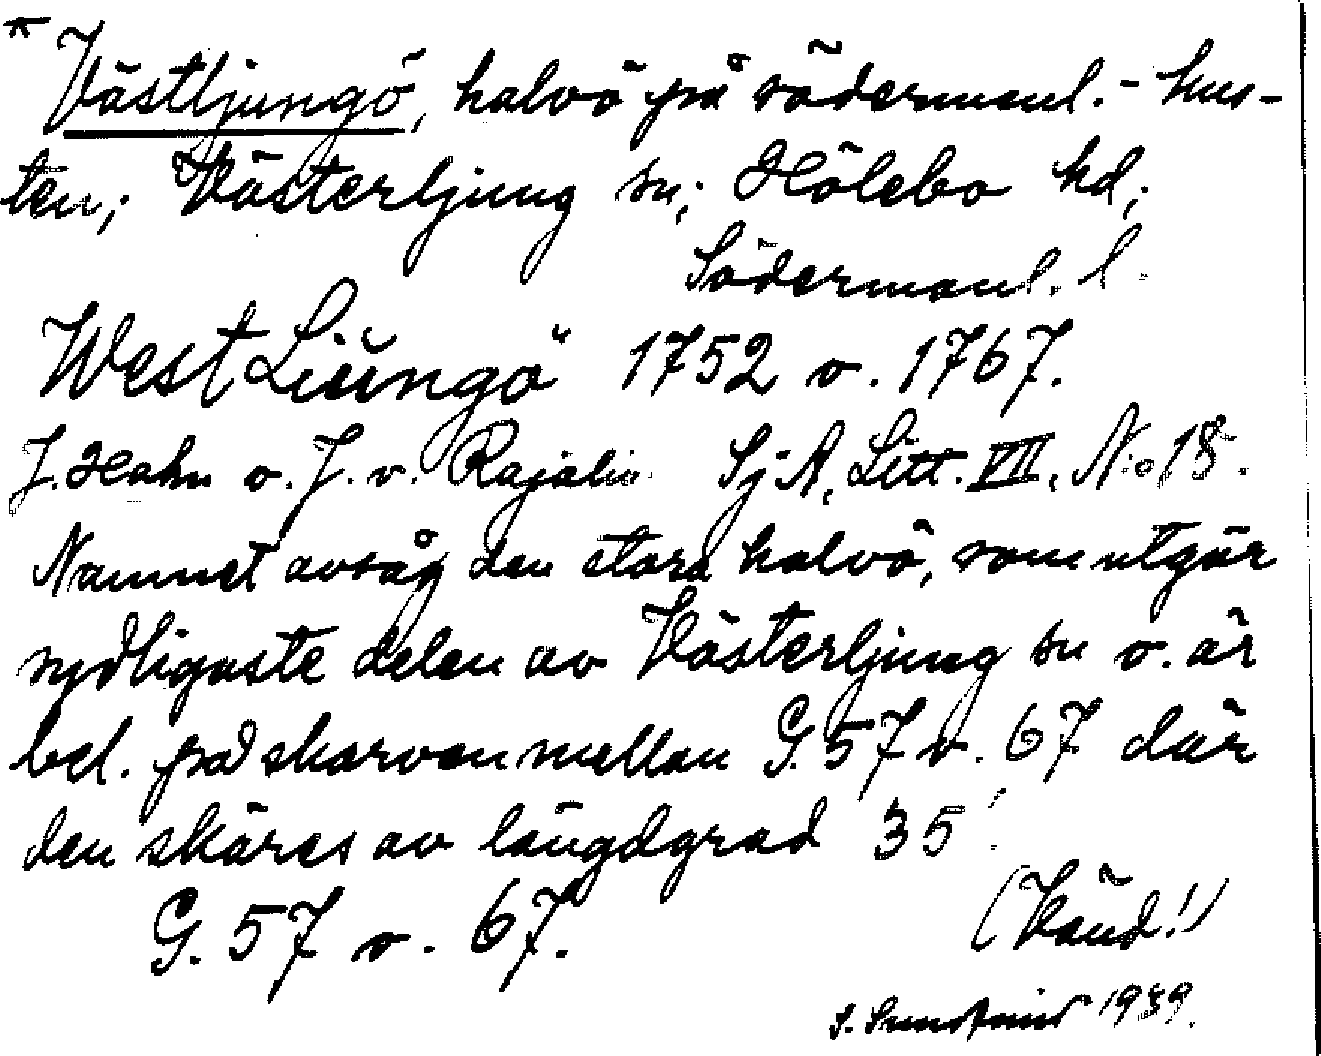 * Västljungö, halvö på södermanl.- kus-
ten; Västerljung sn; Hölebo hd;
Södermanl. l.
West Liüngö 1752 o. 1767.
J. Hahn o. J. v. Rajalin SjA, Litt. VII, N:o 18.
Namnet avsåg den stora halvö, som utgör
sydligaste delen av Västerljung sn o. är
bel. på skarven mellan G. 57 o. 67 där
den skäres av längdgrad 35'.
G. 57 o. 67.
(Vänd!)
S. 1939.